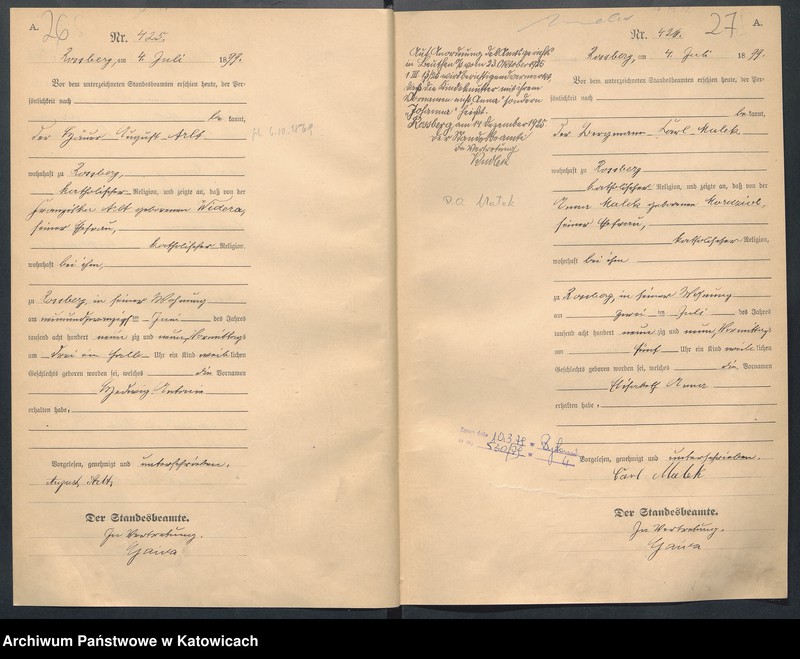 A.
26
Nr. 425.
Rossberg, am 4. Juli 1899.
Vor dem unterzeichneten Standesbeamten erschien heute, der Per-
sönlichkeit nach
be kannt,
der Häuer August Arlt
wohnhaft zu Rossberg,
katholischer Religion, und zeigte an, daß von der
Franziska Arlt geborenen Widera,
seiner Ehefrau,
katholischer Religion
wohnhaft bei ihm,
zu Rossberg, in seiner Wohnung
am neunundzwanzigsten Juni des Jahres
tausend acht hundert neunzig und neun, Vormittags
um drei ein halb Uhr ein Kind weiblichen
Geschlechts geboren worden sei, welches die Vornamen
Hedwig
erhalten habe.
Vorgelesen, genehmigt und unterschrieben.
August Arlt
Der Standesbeamte.
In Vertretung.
Gawa
A.
27
Auf Anordnung des Amtsgerichts
in Beuthen O/S vom 23. Oktober 1925
wird berichtigend vermerkt,
daß die Kindesmutter mit ihrem
Vornamen nicht Anna sondern
"Johanna" heißt.
Rossberg, am 14. Dezember 1925
Der Standesbeamte
In Vertretung
Malek
Rossberg, am 4. Juli 1899.
Vor dem unterzeichneten Standesbeamten erschien heute, der Per-
sönlichkeit nach
be kannt,
der Bergmann Karl Malek
wohnhaft zu Rossberg
katholischer Religion, und zeigte an, daß von der
Anna Malek geborenen
seiner Ehefrau,
katholischer Religion,
wohnhaft bei ihm
zu Rossberg, in seiner Wohnung
am zwei ten Juli des Jahres
tausend acht hundert neunzig und neun, Vormittags
um fünf Uhr ein Kind weiblichen
Geschlechts geboren worden sei, welches die Vornamen
Elisabeth Anna
erhalten habe.
10.3.78
Vorgelesen, genehmigt und unterschrieben.
Carl Malek
Der Standesbeamte.
In Vertretung.
Gawa
Archiwum Państwowe w Katowicach